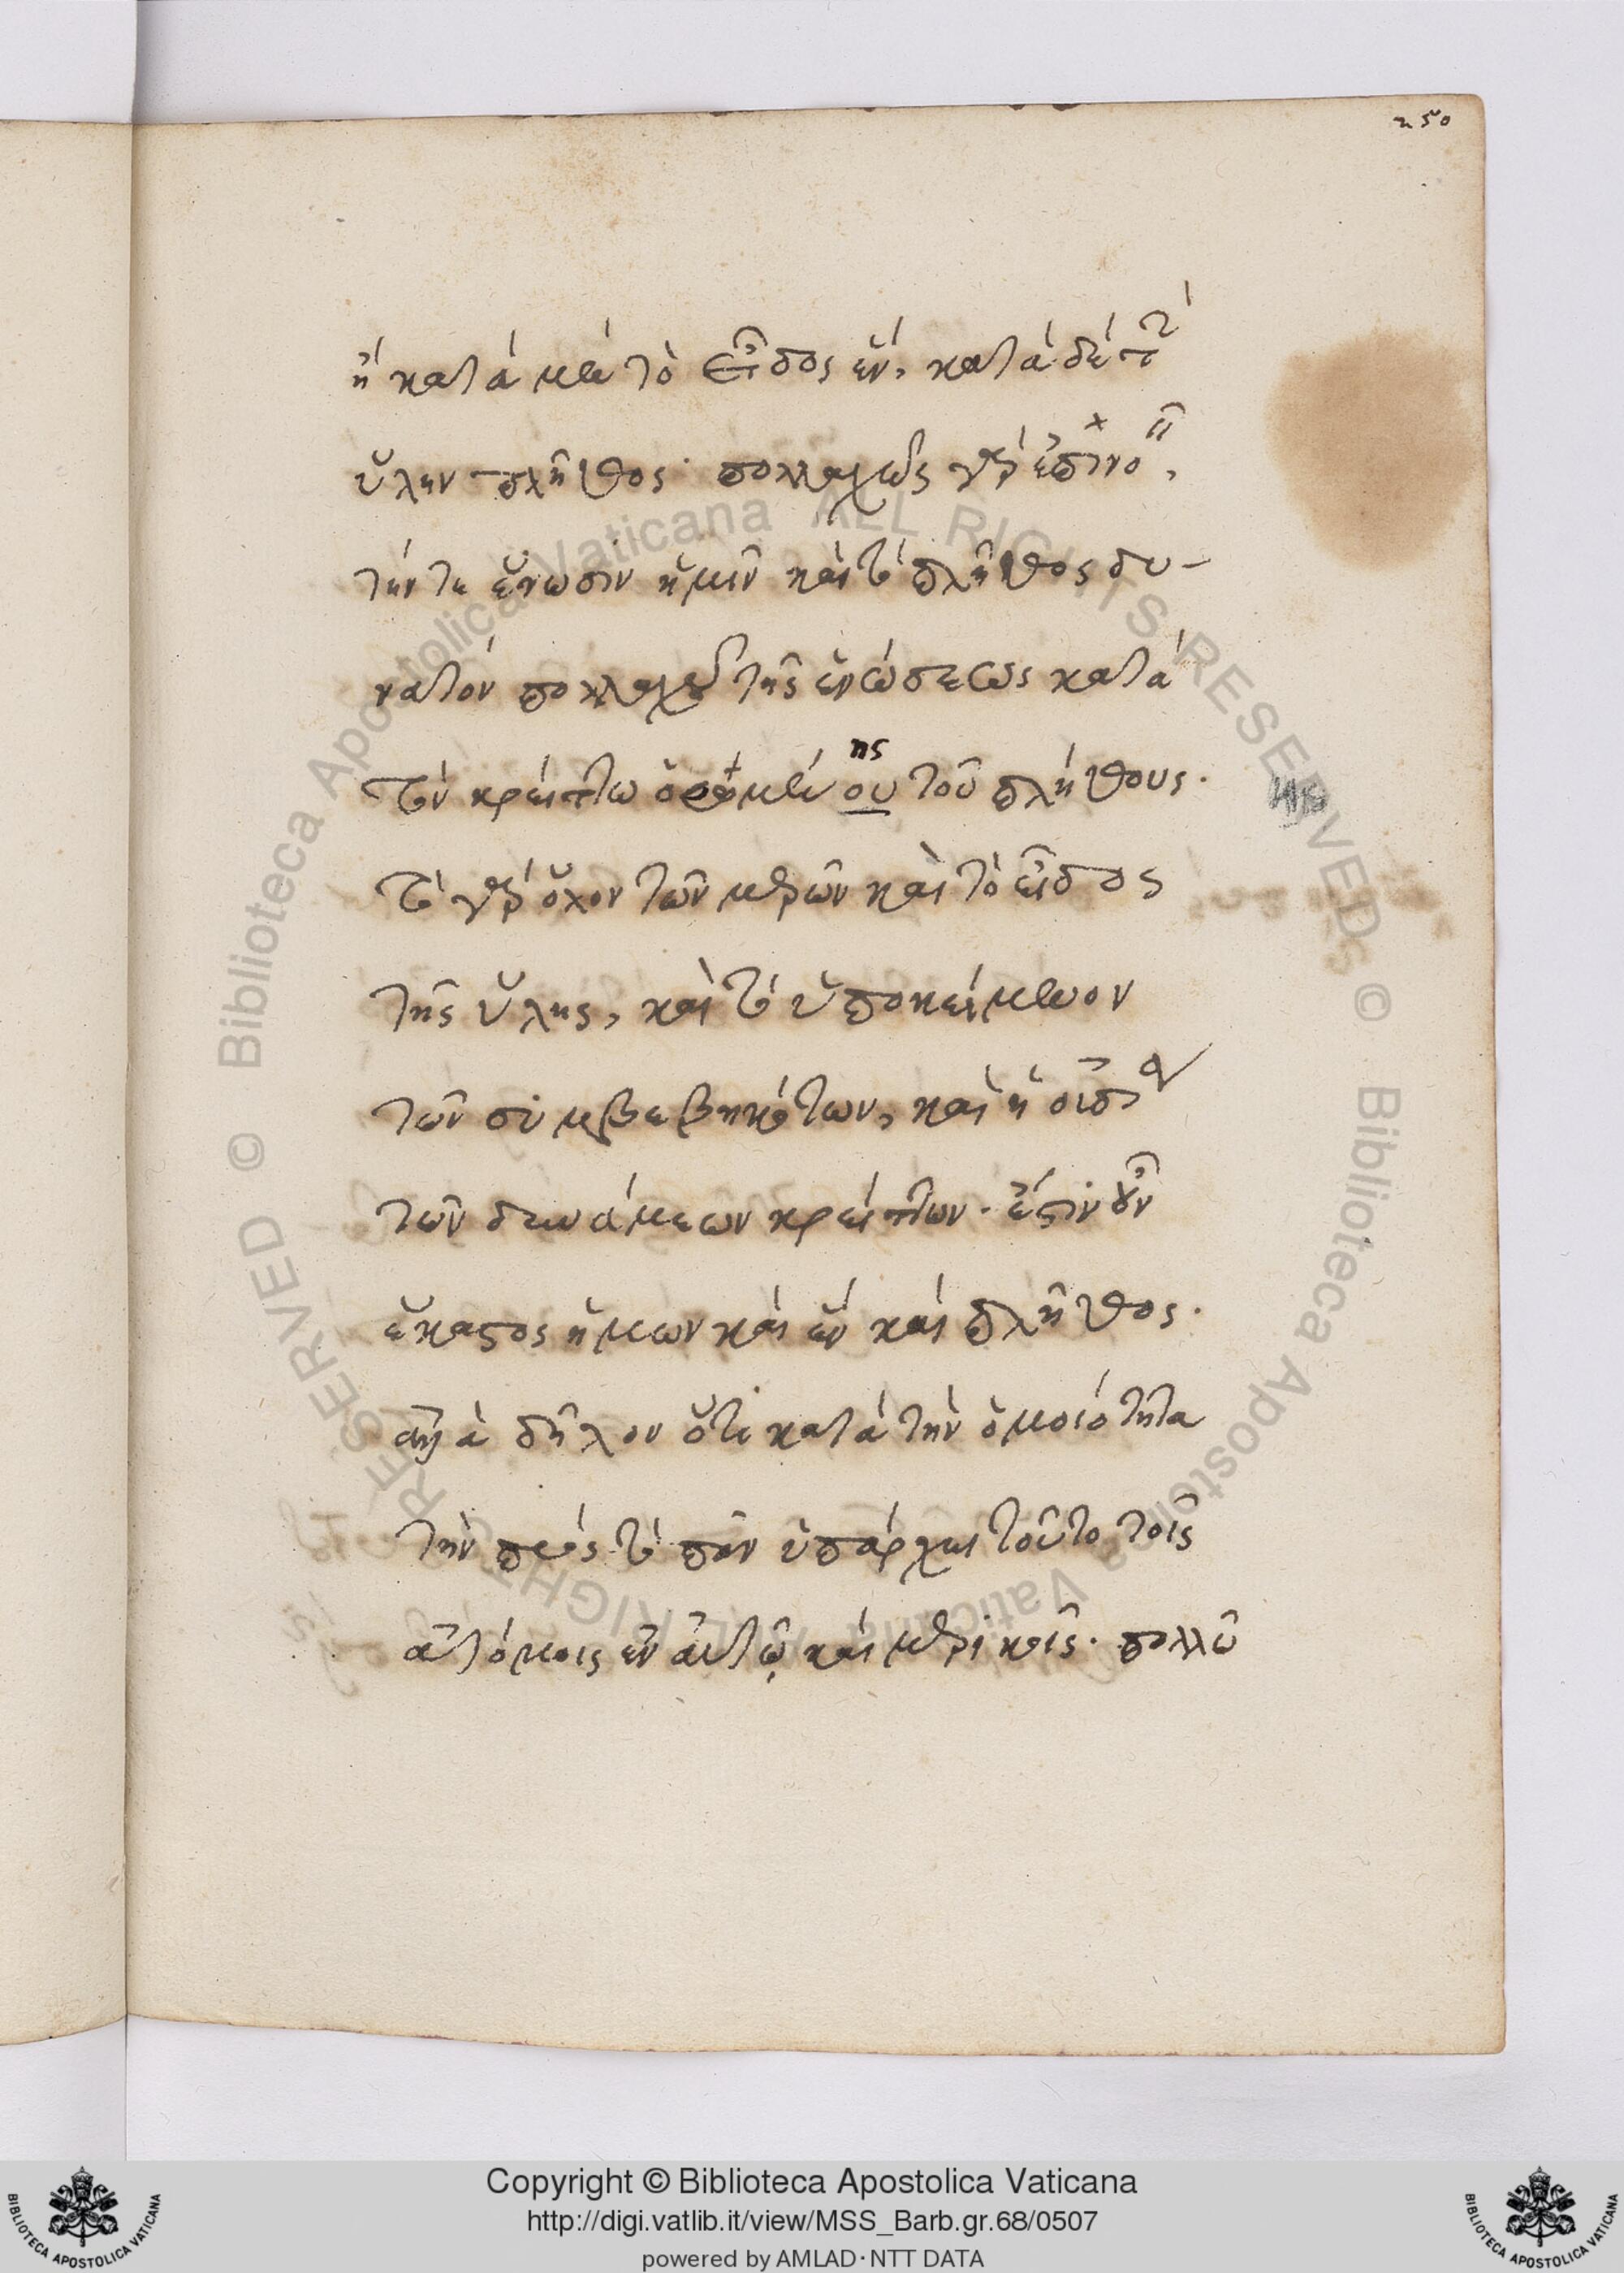 250
ἢ κατὰ μὲν τὸ εἶδος ἕν, κατὰ δὲ τὴν
ὕλην πλῆθος· πολλαχῶς γὰρ ἐπινοεῖν
τήν τε ἕνωσιν ἡμῖν καὶ τὸ πλῆθος δυ-
νατόν πολλαχοῦ τῆς ἑνώσεως κατὰ
τὸν κρείττω ὁρωμένης
ου τοῦ πλήθους·
τὸ γὰρ ὅλον τῶν μερῶν καὶ τὸ εἶδος
τῆς ὕλης, καὶ τὸ ὑποκείμενον
τῶν συμβεβηκότων, καὶ ἡ οὐσία
τῶν δυνάμεων κρείττων· ἔστιν οὖν
ἕκαστος ἡμῶν καὶ ἓν καὶ πλῆθος·
ἀλλὰ δῆλον ὅτι κατὰ τὴν ὁμοιότητα
τὴν πρὸς τὸ πᾶν ὑπάρχει τοῦτο τοῖς
ἀτόμοις ἐν αὐτῷ καὶ μερικοῖς· πολλῷ
© Biblioteca Apostolica Vaticana ALL RIGHTS RESERVED © Biblioteca Apostolica Vaticana ALL RIGHTS RESERVED
Copyright © Biblioteca Apostolica Vaticana
http://digi.vatlib.it/view/MSS_Barb.gr.68/0507
powered by AMLAD·NTT DATA
BIBLIOTECA APOSTOLICA VATICANA
BIBLIOTECA APOSTOLICA VATICANA